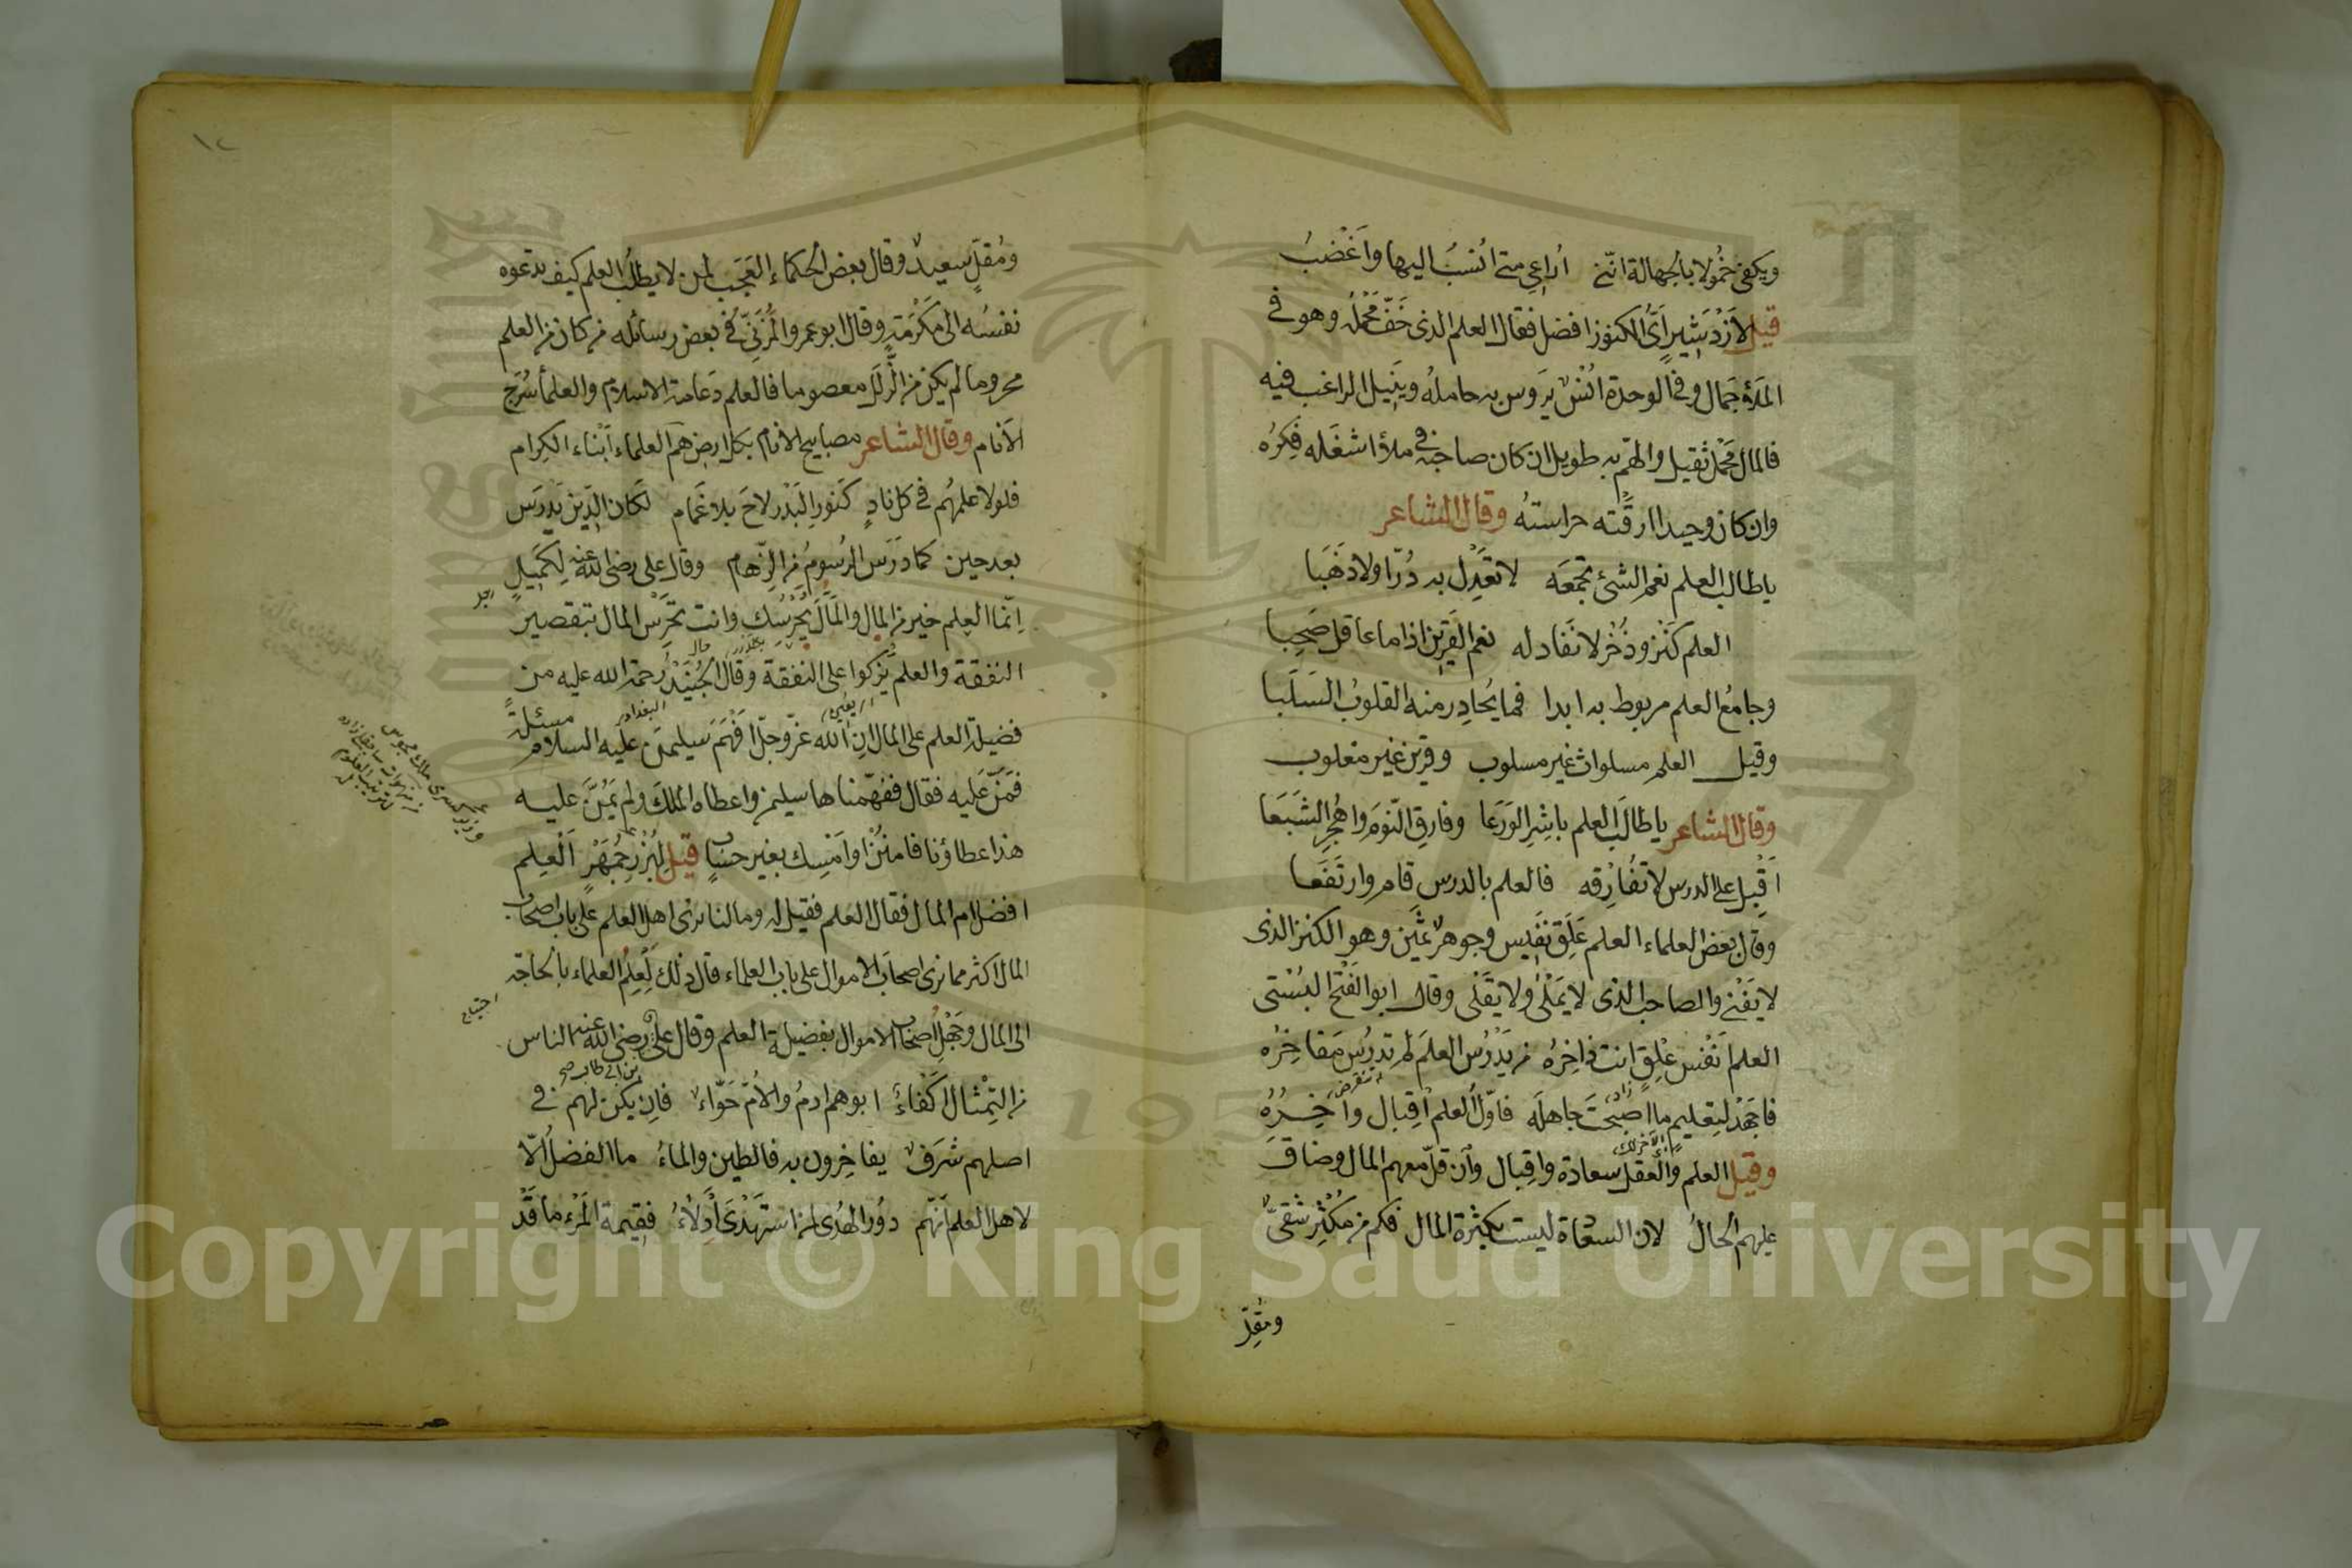 ويكفى خمولا بالجهالة اننى اراعى متى انسب اليها واغضب
قيل لأزدشير أىّ الكنوز افضل فقال العلم الذى خفّ محمله وهو فى
الملأ جمال وفى الوحدة انس يروس به حامله وينيل الراغب فيه
فالمال محمل ثقيل والهمّ به طويل ان كان صاحبه فى ملأ اشغله فكره
وان كان وحيدا ارقته حراسته وقال الشاعر
يا طالب العلم نعم الشئ تجمعه لا تعدل به درّا ولا ذهبا
العلم كنز وذخر لا نفاد له نعم القرين اذا ما عاقل صحبا
وجامع العلم مربوط به ابدا فما يحادر منه القلوب السلبا
وقيل العلم مسلوات غير مسلوب وقرين غير مغلوب
وقال الشاعر يا طالب العلم باشر الورعا وفارق النوم واهجر الشبعا
اقبل على الدرس لا تفارقه فالعلم بالدرس قام وارتفعا
وقال بعض العلماء العلم علق نفيس وجوهر ثمين وهو الكنز الذى
لا يفنى والصاحب الذى لا يملى ولا يقلى وقال ابو الفتح البستى
العلم انفس علق انت ذاخره من يدرس العلم لم تدرس مفاخره
فاجهد لتعليم ما اصبحت جاهله فاوّل العلم اقبال وآخره
وقيل العلم والعقل سعادة واقبال وان قلّ معهم المال وضاق
عليهم الحال لان السعادة ليست بكثرة المال فكم من مكثر شقىّ
ومقلّ
١٢
ومقلّ سعيد وقال بعض الحكماء العجب لمن لا يطلب العلم كيف تدعوه
نفسه الى مكرمة وقال ابو عمرو المزنىّ فى بعض رسائله من كان من العلم
محروما لم يكن من الزلل معصوما فالعلم دعامة الاسلام والعلمأ سرج
الأنام وقال الشاعر مصابيح الانام بكل ارض هم العلماء أبناء الكرام
فلولا علمهم فى كل ناد كنور البدر لاح بلا غمام لكان الدين يدرس
بعد حين كما درس الرسوم من الرّهام وقال على رضى الله عنه لكميل
انما العلم خير من المال والمال يحرسك وانت تحرس المال تنقصه
النفقة والعلم يزكوا على النفقة وقال الجنيد رحمة الله عليه من
البغدادى
يعنى
مسئلة
فضيلة العلم على المال ان الله عزّ وجلّ افهم سليمن عليه السلام
فمنّ عليه فقال ففهّمناها سليمن واعطاه الملك ولم يمنّ عليه
هذا عطاؤنا فامنن او امسك بغير حساب قيل لبزرجمهر العلم
افضل ام المال فقال العلم فقيل له وما لنا نرى اهل العلم على باب اصحاب
المال اكثر مما نرى اصحاب الاموال على باب العلماء قال ذلك لعلم العلماء بالحاجة
الى المال وجهل اصحاب الاموال بفضيلة العلم وقال على رضى الله عنه الناس
بن ابى طالب صح
من التمثال اكفاء ابوهم ادم والأمّ حوّاء فان يكن لهم فى
اصلهم شرف يفاخرون به فالطين والماء ما الفضل الّا
لاهل العلم انّهم على الهدى لمن استهدى أدلّاء فقيمة المرء ما قد